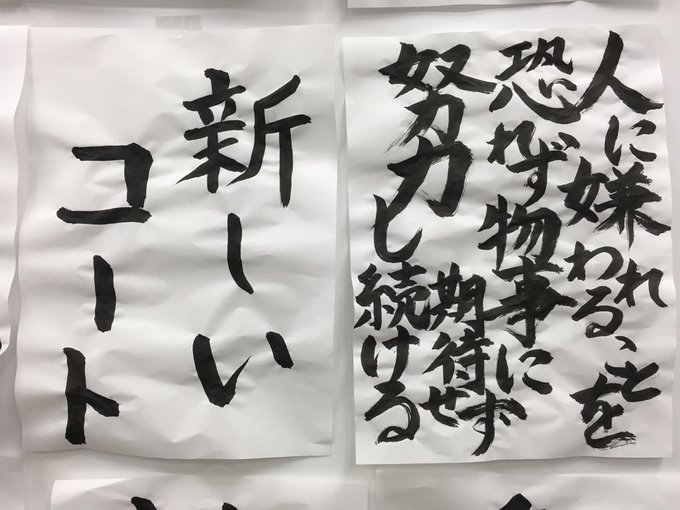 人に嫌われることを
恐れず物事に
期待せず
努力し続ける
新しい
コート